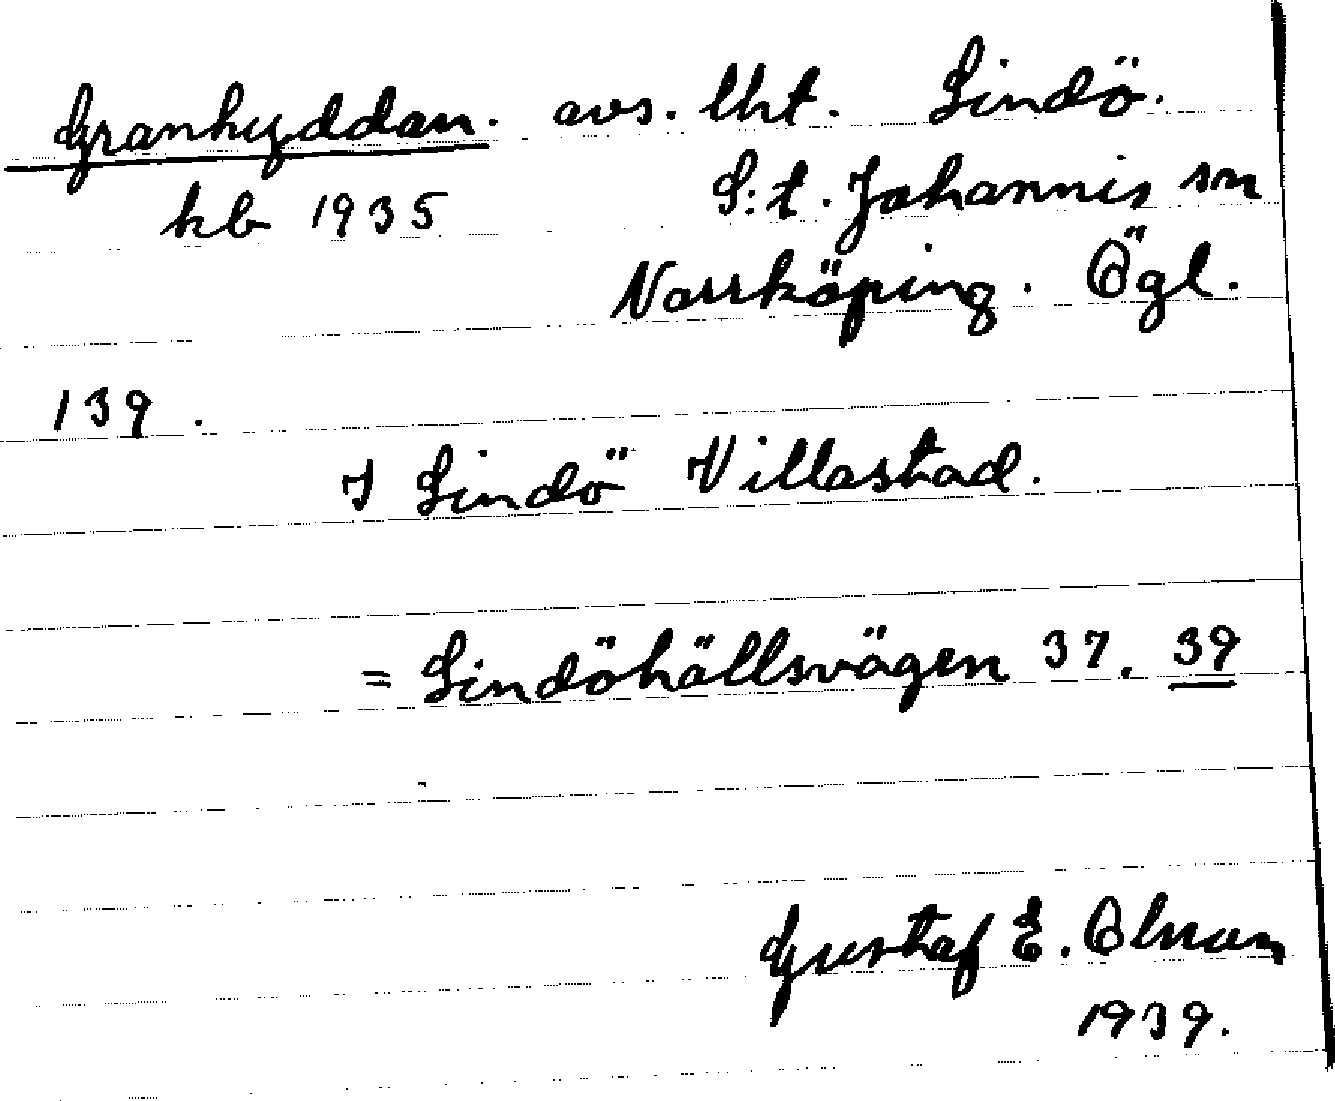 Granhyddan. avs. lht. Lindö.
kb 1935 S:t. Johannis sn
Norrköping. Ögl.
139.
I Lindö Villastad.
= Lindöhällsvägen 37, 39
Gustaf E. Olsson
1939.